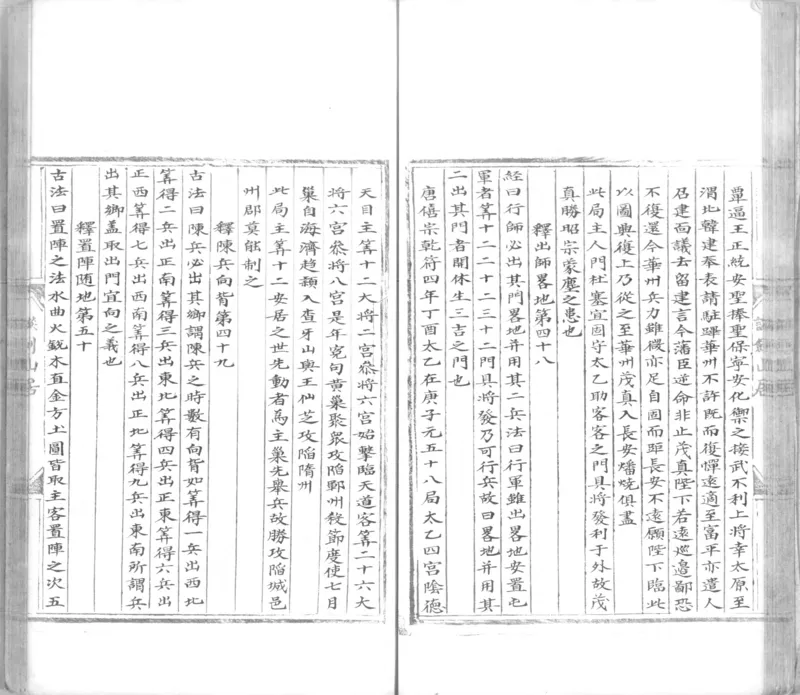 覃逼王正統安聖捧聖保寧安化禦之接武不利上將幸太原至
渭北韓建奉表請駐蹕華州不許既而復憚遠適至富平亦遣人
召建面議去留建言今藩臣逆命非止茂真陛下若遠巡邉鄙恐
不復還今華州兵力雖微亦足自固而距長安不遠願陛下臨此
以圖興復上乃從之至華州茂真入長安燔燒俱盡
此局主人門杜塞宜固守太乙助客客之門具將發利于外故茂
真勝昭宗蒙塵之患也
釋出師畧地第四十八
經曰行師必出其門畧地并用其二兵法曰行軍雖出畧地安置屯
軍者筭十一二十二三十二門具將發乃可行兵故曰畧地并用其
二出其門者開休生三吉之門也
唐僖宗乾符四年丁酉太乙在庚子元五十八局太乙四宮陰德
天目主筭十二大將二宮叅將六宮始擊臨天道客筭二十六大
將六宮叅將八宮是年寃句黄巢聚衆攻陷鄆州殺節度使七月
巢自海濟趋潁入查牙山與王仙芝攻陷隋州
此局主筭十二安居之世先動者爲主巢先舉兵故勝攻陷城邑
州郡莫能制之
釋陳兵向背第四十九
古法曰陳兵必出其鄉謂陳兵之時數有向背如筭得一兵出西北
筭得二兵出正南筭得三兵出東北筭得四兵出正東筭得六兵出
正西筭得七兵出西南筭得八兵出正北筭得九兵出東南所謂兵
出其鄉盖取出門宜向之義也
釋置陣随地第五十
古法曰置陣之法水曲火銳木直金方土圓皆取主客置陣之次五